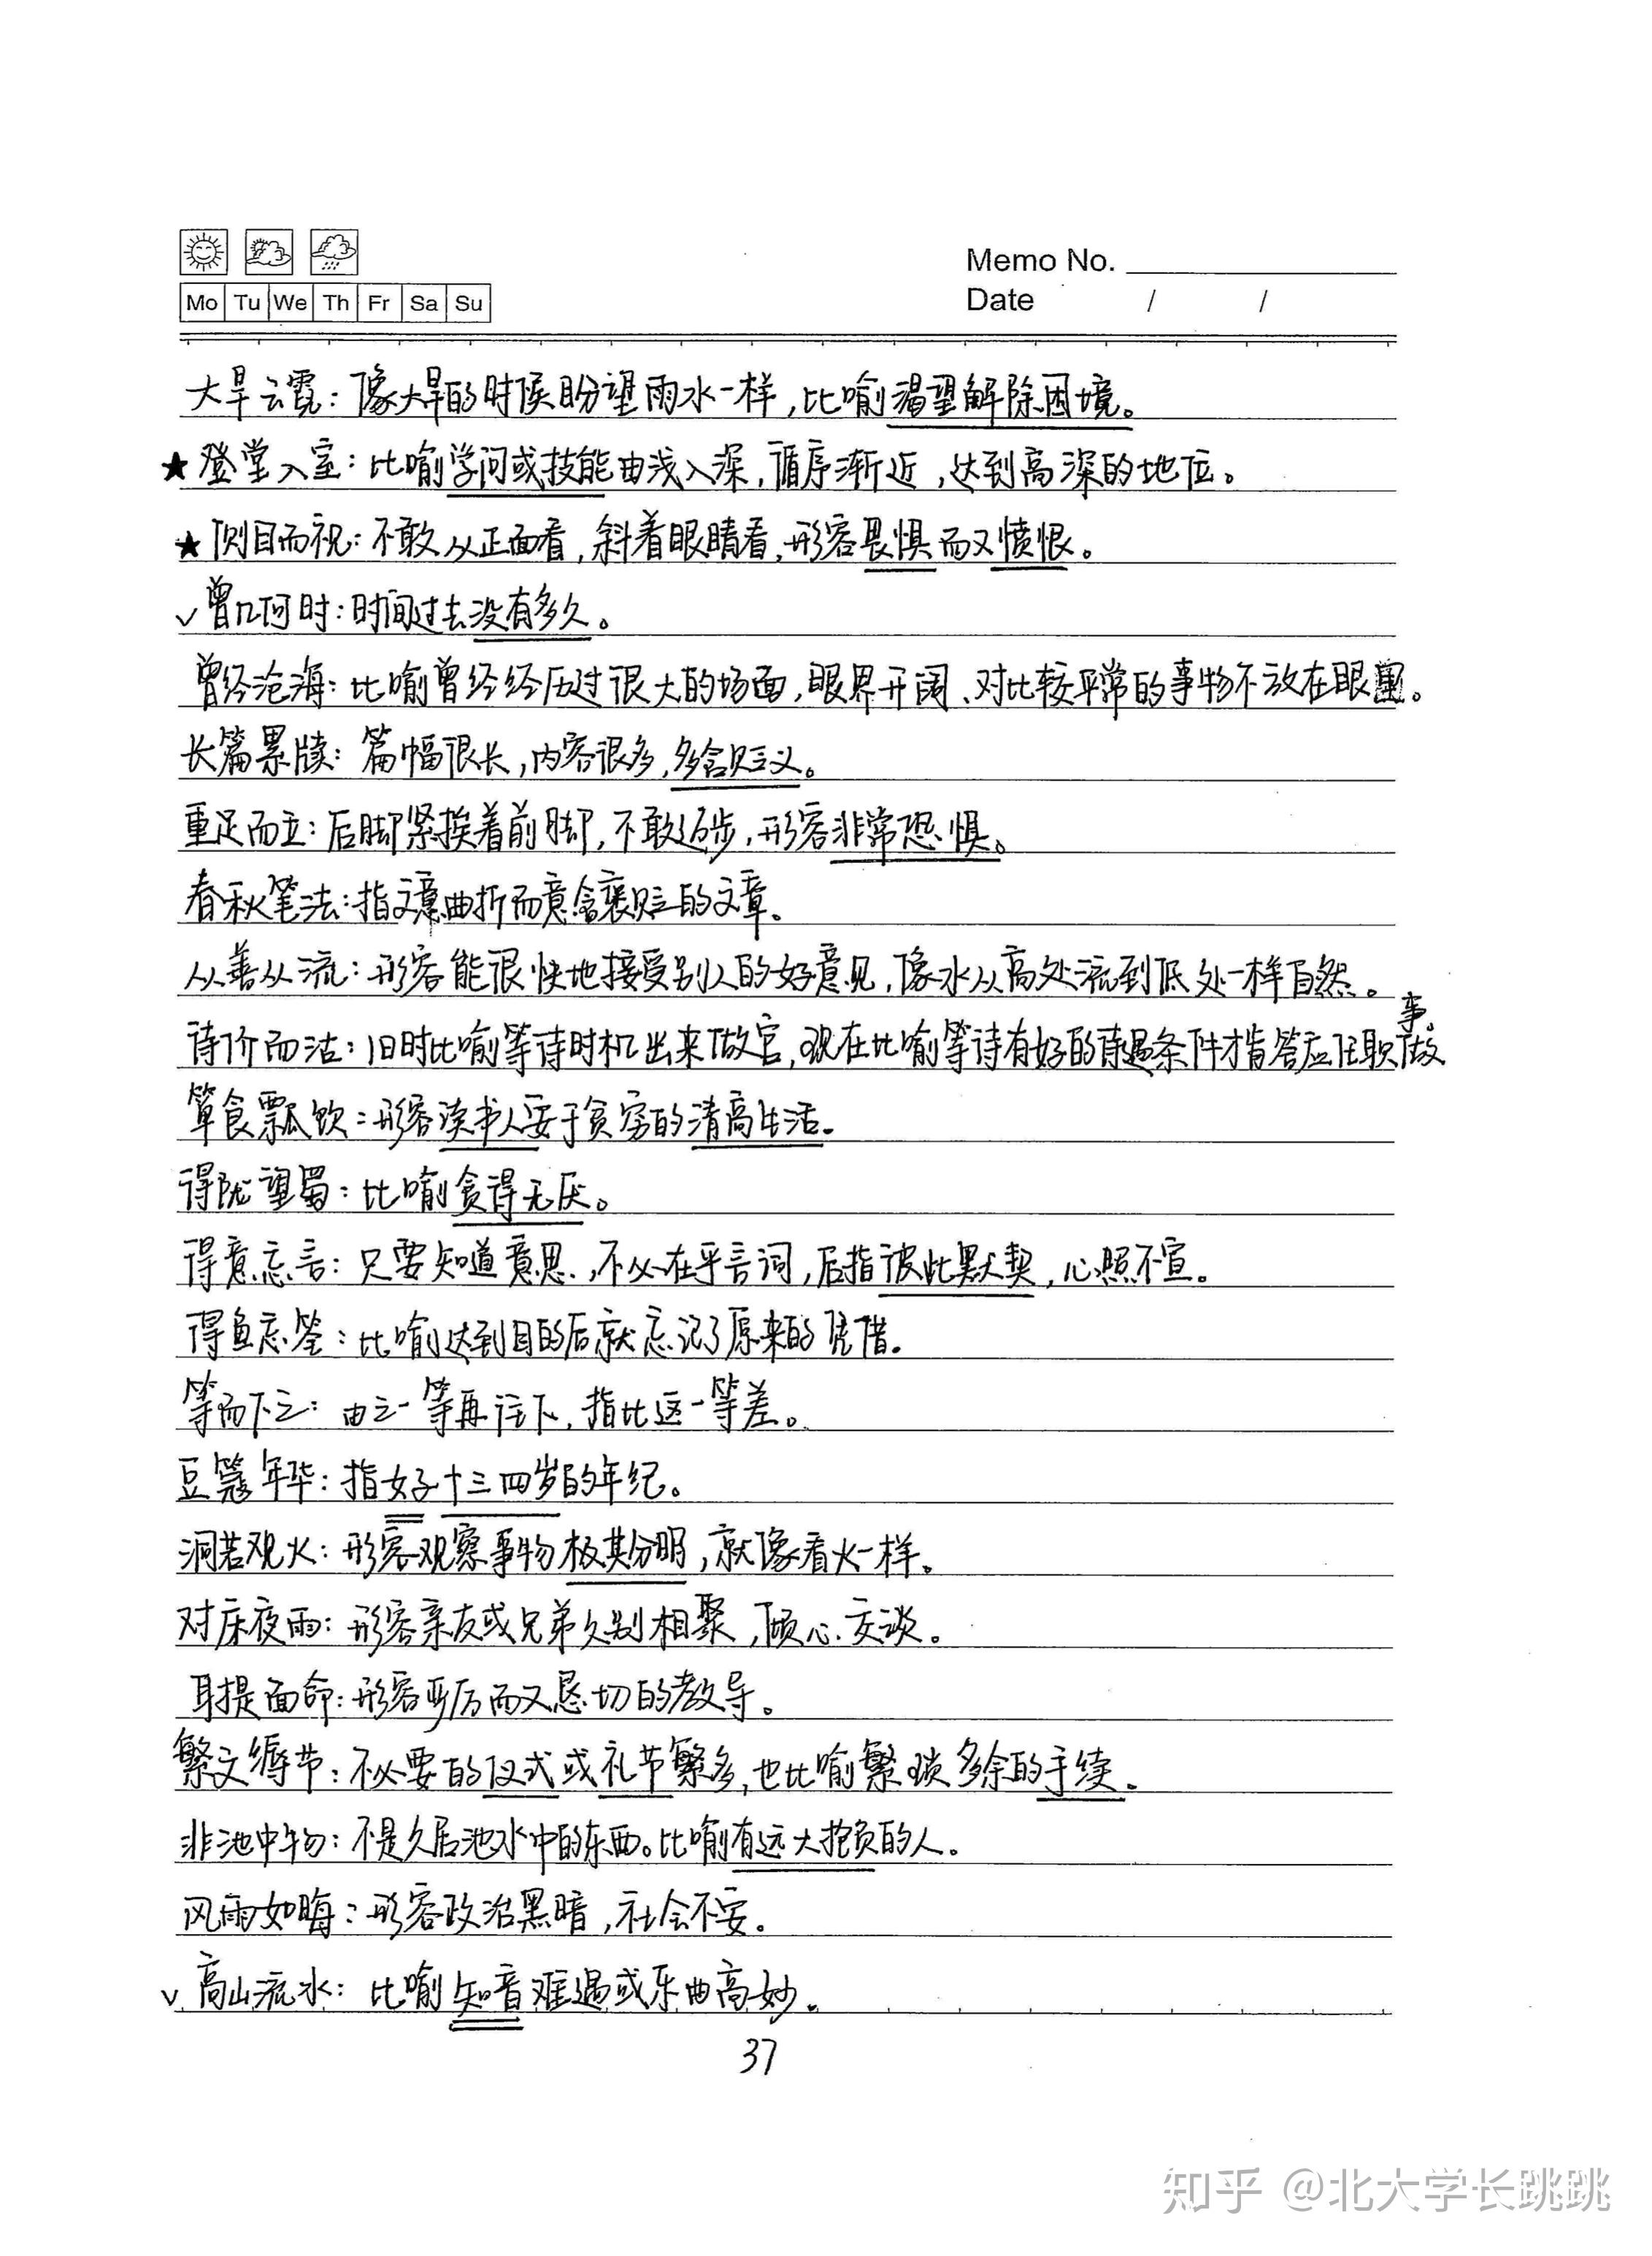 Memo No.
Mo Tu We Th Fr Sa Su
Date / /
大旱云霓：像大旱的时候盼望雨水一样，比喻渴望解除困境。
★登堂入室：比喻学问或技能由浅入深，循序渐近，达到高深的地位。
★侧目而视：不敢从正面看，斜着眼睛看，形容畏惧而又愤恨。
✓曾几何时：时间过去没有多久。
曾经沧海：比喻曾经经历过很大的场面，眼界开阔、对比较平常的事物不放在眼里。
长篇累牍：篇幅很长，内容很多，多含贬义。
重足而立：后脚紧挨着前脚，不敢迈步，形容非常恐惧。
春秋笔法：指文意曲折而意含褒贬的文章。
从善从流：形容能很快地接受别人的好意见，像水从高处流到低处一样自然。
待价而沽：旧时比喻等待时机出来做官，现在比喻等待有好的待遇条件才肯答应任职做事。
箪食瓢饮：形容读书人安于贫穷的清高生活。
得陇望蜀：比喻贪得无厌。
得意忘言：只要知道意思，不必在乎言词，后指彼此默契，心照不宣。
得鱼忘筌：比喻达到目的后就忘记了原来的凭借。
等而下之：由这一等再往下，指比这一等差。
豆蔻年华：指女子十三四岁的年纪。
洞若观火：形容观察事物极其分明，就像看火一样。
对床夜雨：形容亲友或兄弟久别相聚，倾心交谈。
耳提面命：形容严厉而又恳切的教导。
繁文缛节：不必要的仪式或礼节繁多，也比喻繁琐多余的手续。
非池中物：不是久居池水中的东西。比喻有远大抱负的人。
风雨如晦：形容政治黑暗，社会不安。
✓高山流水：比喻知音难遇或乐曲高妙。
37
知乎 @北大学长跳跳